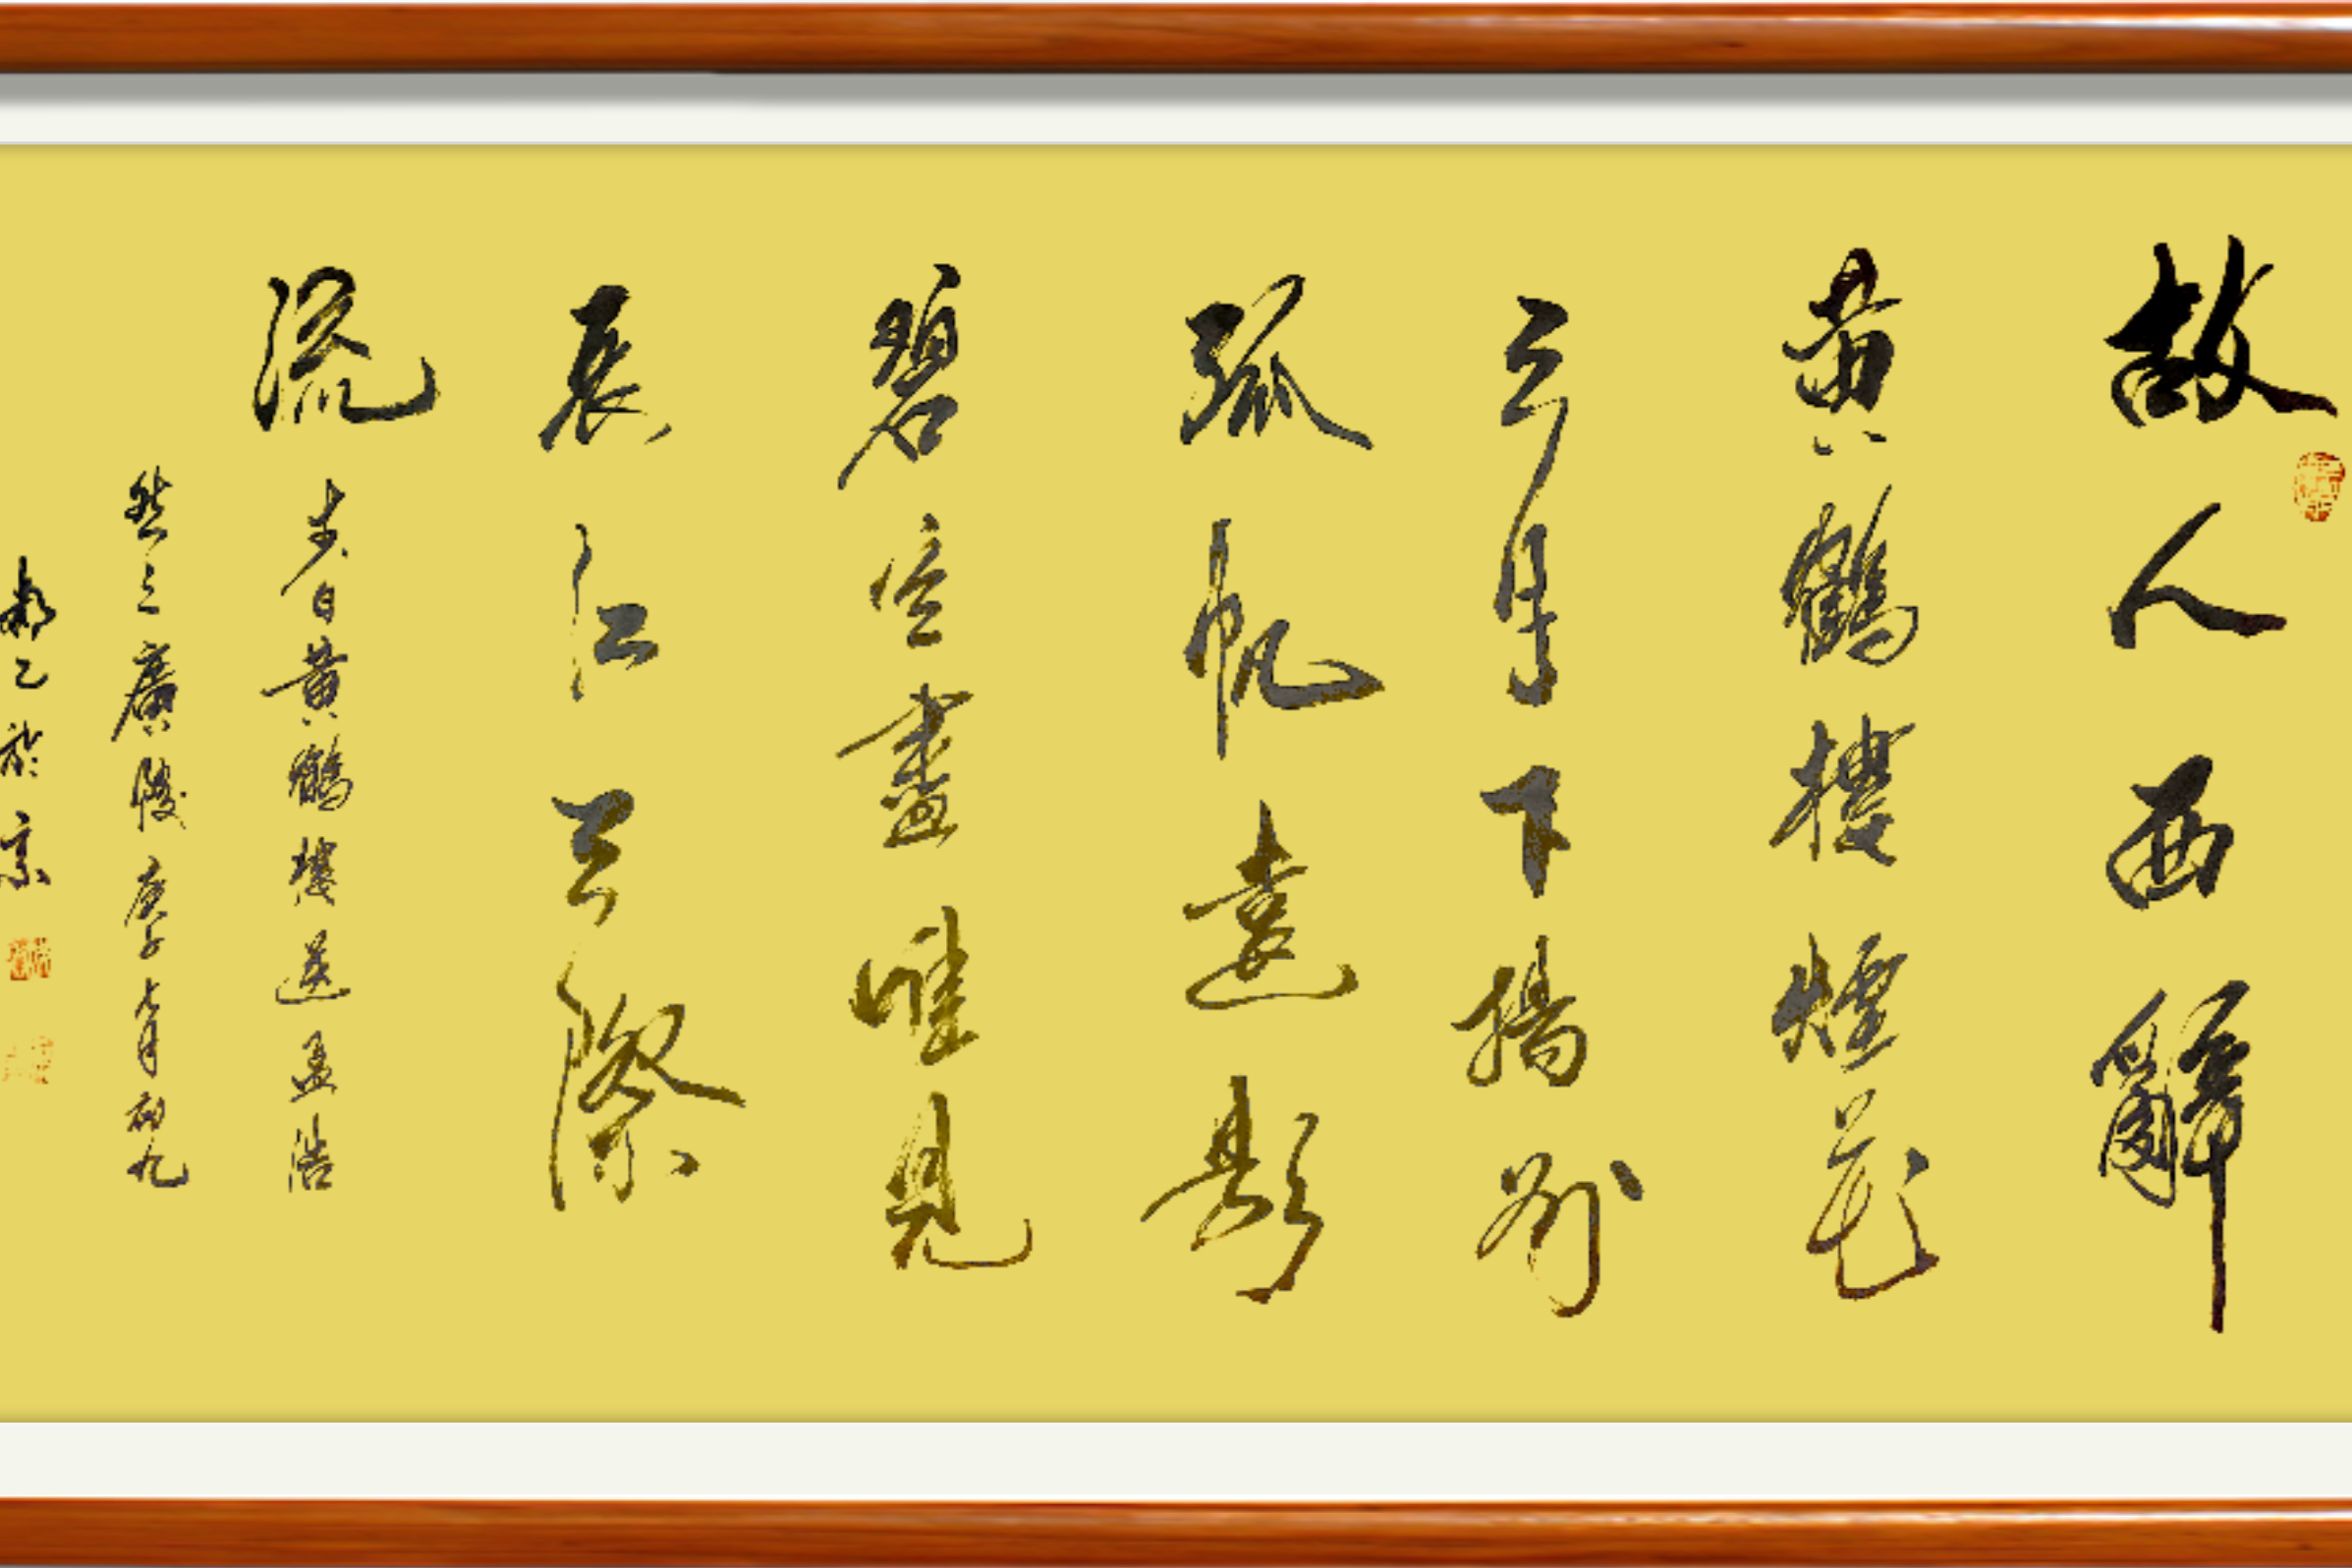 故人西辭
黃鶴樓煙花
三月下揚州
孤帆遠影
碧空盡唯見
長江天際
流
李白黃鶴樓送孟浩
然之廣陵庚子七月初九
乙於京